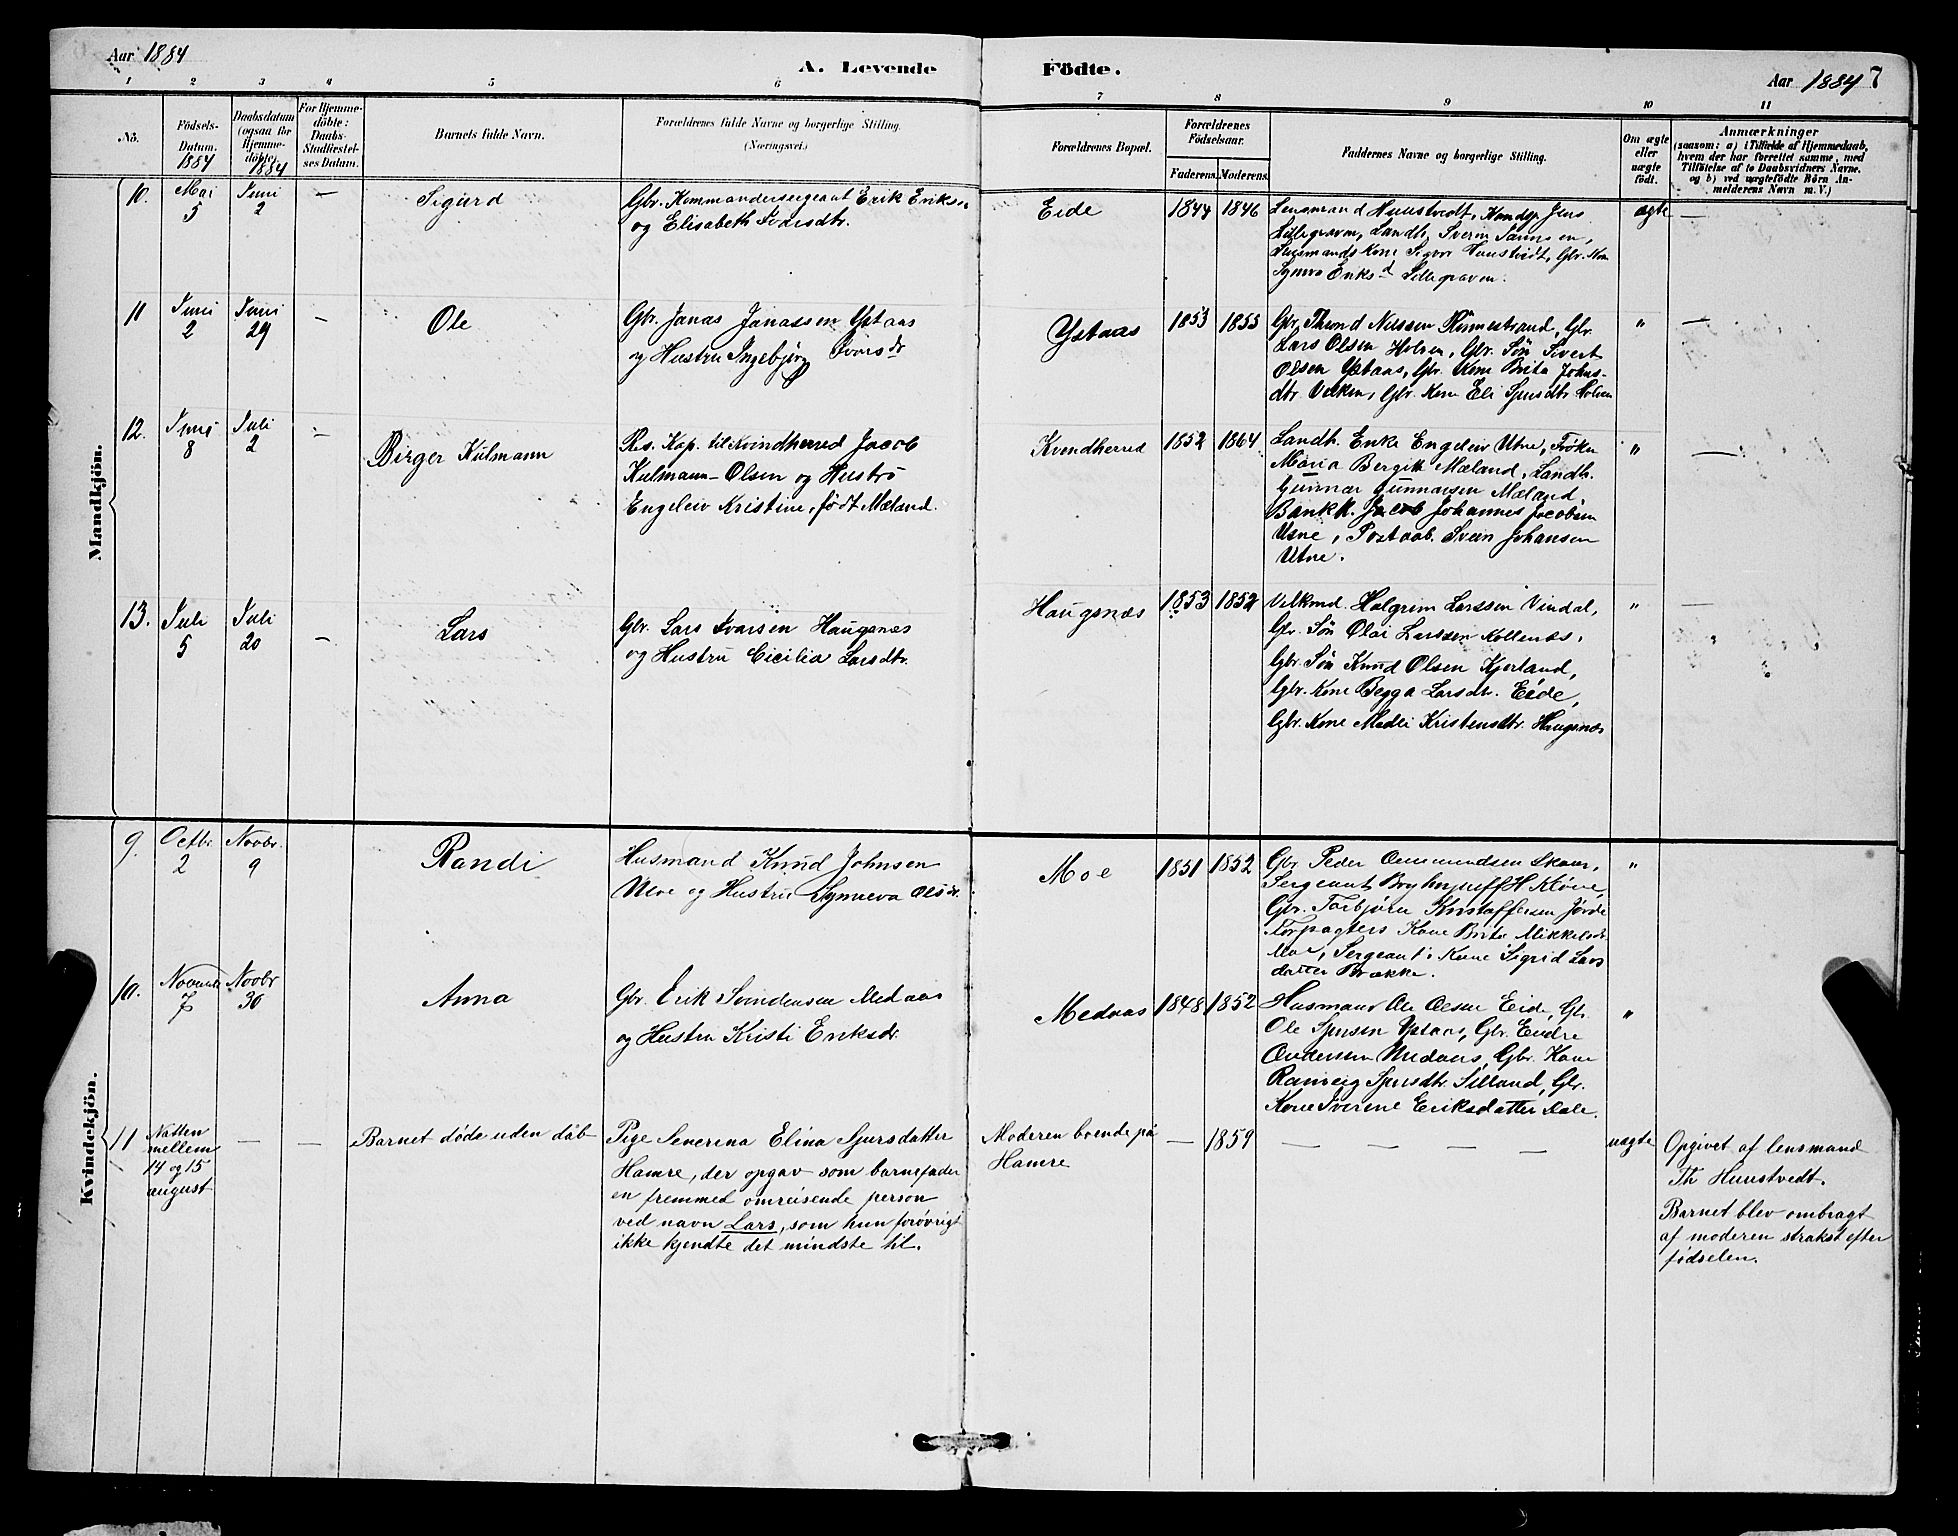 Aar 1884
A. Levende Födte.
Aar 1884 7
1 2 3 4 5 6 7 8 9 10 11
No.
Födsels-
Datum.
1884
Daabsdatum
(ogsaa for
Hjemme-
döbte).
1884
For Hjemme-
döbte:
Daabs-
Stadfæstel-
ses Datum.
Barnets fulde Navn.
Forældrenes fulde Navne og borgerlige Stilling.
(Næringsvei.)
Forældrenes Bopæl.
Forældrenes
Födselsaar.
Faderens. Moderens.
Faddernes Navne og borgerlige Stilling.
Om ægte
eller
uægte
født.
Anmærkninger
(saasom: a) i Tilfælde af Hjemmedaab,
hvem der har forrettet samme, med
Tilföielse af to Daabsvidners Navne.
og b) ved uægtefödte Börn An-
melderens Navn m. V.)
Mandkjön.
10. Mai 5 Juni 2 — Sigurd
Gbr. Kommandersergeant Erik Eriks
og Elisabeth
Eide 1844 1846
Lensmand Hunstvedt,
Lillegraven, Landh.
Lensmands Kone
Lillegraven.
ægte —
11 Juni 2 Juni 29 — Ole
Gbr. Jonas Jonassen Ystaas
og Hustru Ingebjørg Ivarsdr
Ystaas 1853 1855
Gbr. Nilssen Gbr.
Lars Olsen Holven, Gbr. Søn Sivert
Olsen Ystaas, Gbr. Kone Brita Johns-
dtr. Gbr. Kone Eli Sjursdtr. Holven
" —
12. Juni 8 Juli 2 — Birger Kulmann
Res. Kap. til Kvindherred Jacob
Kulmann-Olsen og Hustru
Engelev Kristine, født Mæland.
Kvendherred 1852 1864
Landh. Enke Engelev Utne, Frøken
Maria Mæland, Landh.
Gunnar Gunnarsen Mæland,
Bankk. Jacob Johannes Jacobsen
Utne, Postaab. Svein Johansen
Utne.
" —
13. Juli 5 Juli 20 — Lars
Gbr. Lars Ivarsen Haugsnæs
og Hustru Cicilia Larsdtr.
Haugsnæs 1853 1852
Holgrim Larssen Vindal,
Gbr. Søn Olai Larssen Kollenes,
Gbr. Søn Knud Olsen Kjerland,
Gbr. Kone Begga Larsdtr. Eide,
Gbr. Kone Madli Kristensdtr. Haugsnæs
" —
Kvindekjön.
9. Octbr. 2 Novbr. 9 Randi
Husmand Knud Johnsen
Moe og Hustru Synneva Olsdr.
Moe 1851 1852
Gbr. Peder
Sergeant
Gbr. Torbjørn Kristoffersen
Forpagters Kone Brita Mikkelsdr.
Moe, Sergeants Kone Sigrid Lars
datter Brække.
"
10. 7 Novbr 30 Anna
Gbr. Erik Svindensen Medaas
og Hustru Kristi Eriksdr.
Medaas 1848 1852
Husmand Ole Olsen Eide, Gbr.
Ole Sjursen Ystaas, Gbr. Endre
Andersen Medaas, Gbr. Kone
Ranveig Sjursdtr. Gbr.
Kone Eriksdatter
"
11 Natten
mellem
14 og 15
august
— — Barnet døde uden dåb
Pige Severina Elina Sjursdatter
Hamre, der opgav som barnefader
en fremmed omreisende person
ved navn Lars, som hun forøvrigt
ikke kjendte det mindste til.
Moderen boende på
Hamre
— 1859 — — — —
uægte
Opgivet af lensmand
Th Hunstvedt.
Barnet blev ombragt
af moderen strakst efter
fødselen.